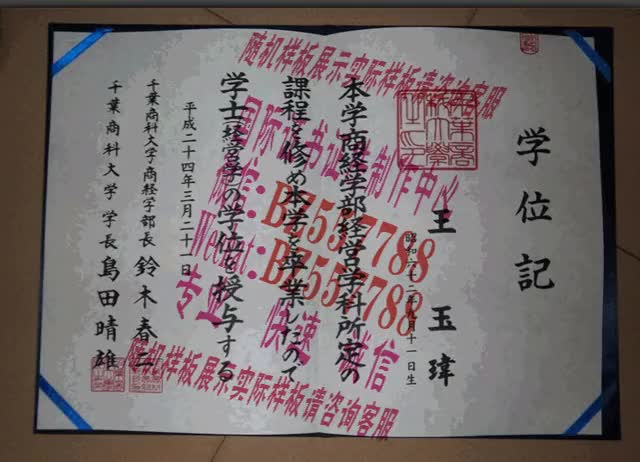 学位記
王 玉瑋
昭和六十二年九月十一日生
本学商経学部経営学科所定の
課程を修め本学を卒業したので
学士(経営学)の学位を授与する
平成二十四年三月二十一日
千葉商科大学商経学部長 鈴木春二
千葉商科大学 学長 島田晴雄
随机样板展示实际样板请咨询客服
国际证书证件制作中心
微信:BZ5557788
Wechat:BZ5557788
专业 快速 诚信
随机样板展示实际样板请咨询客服